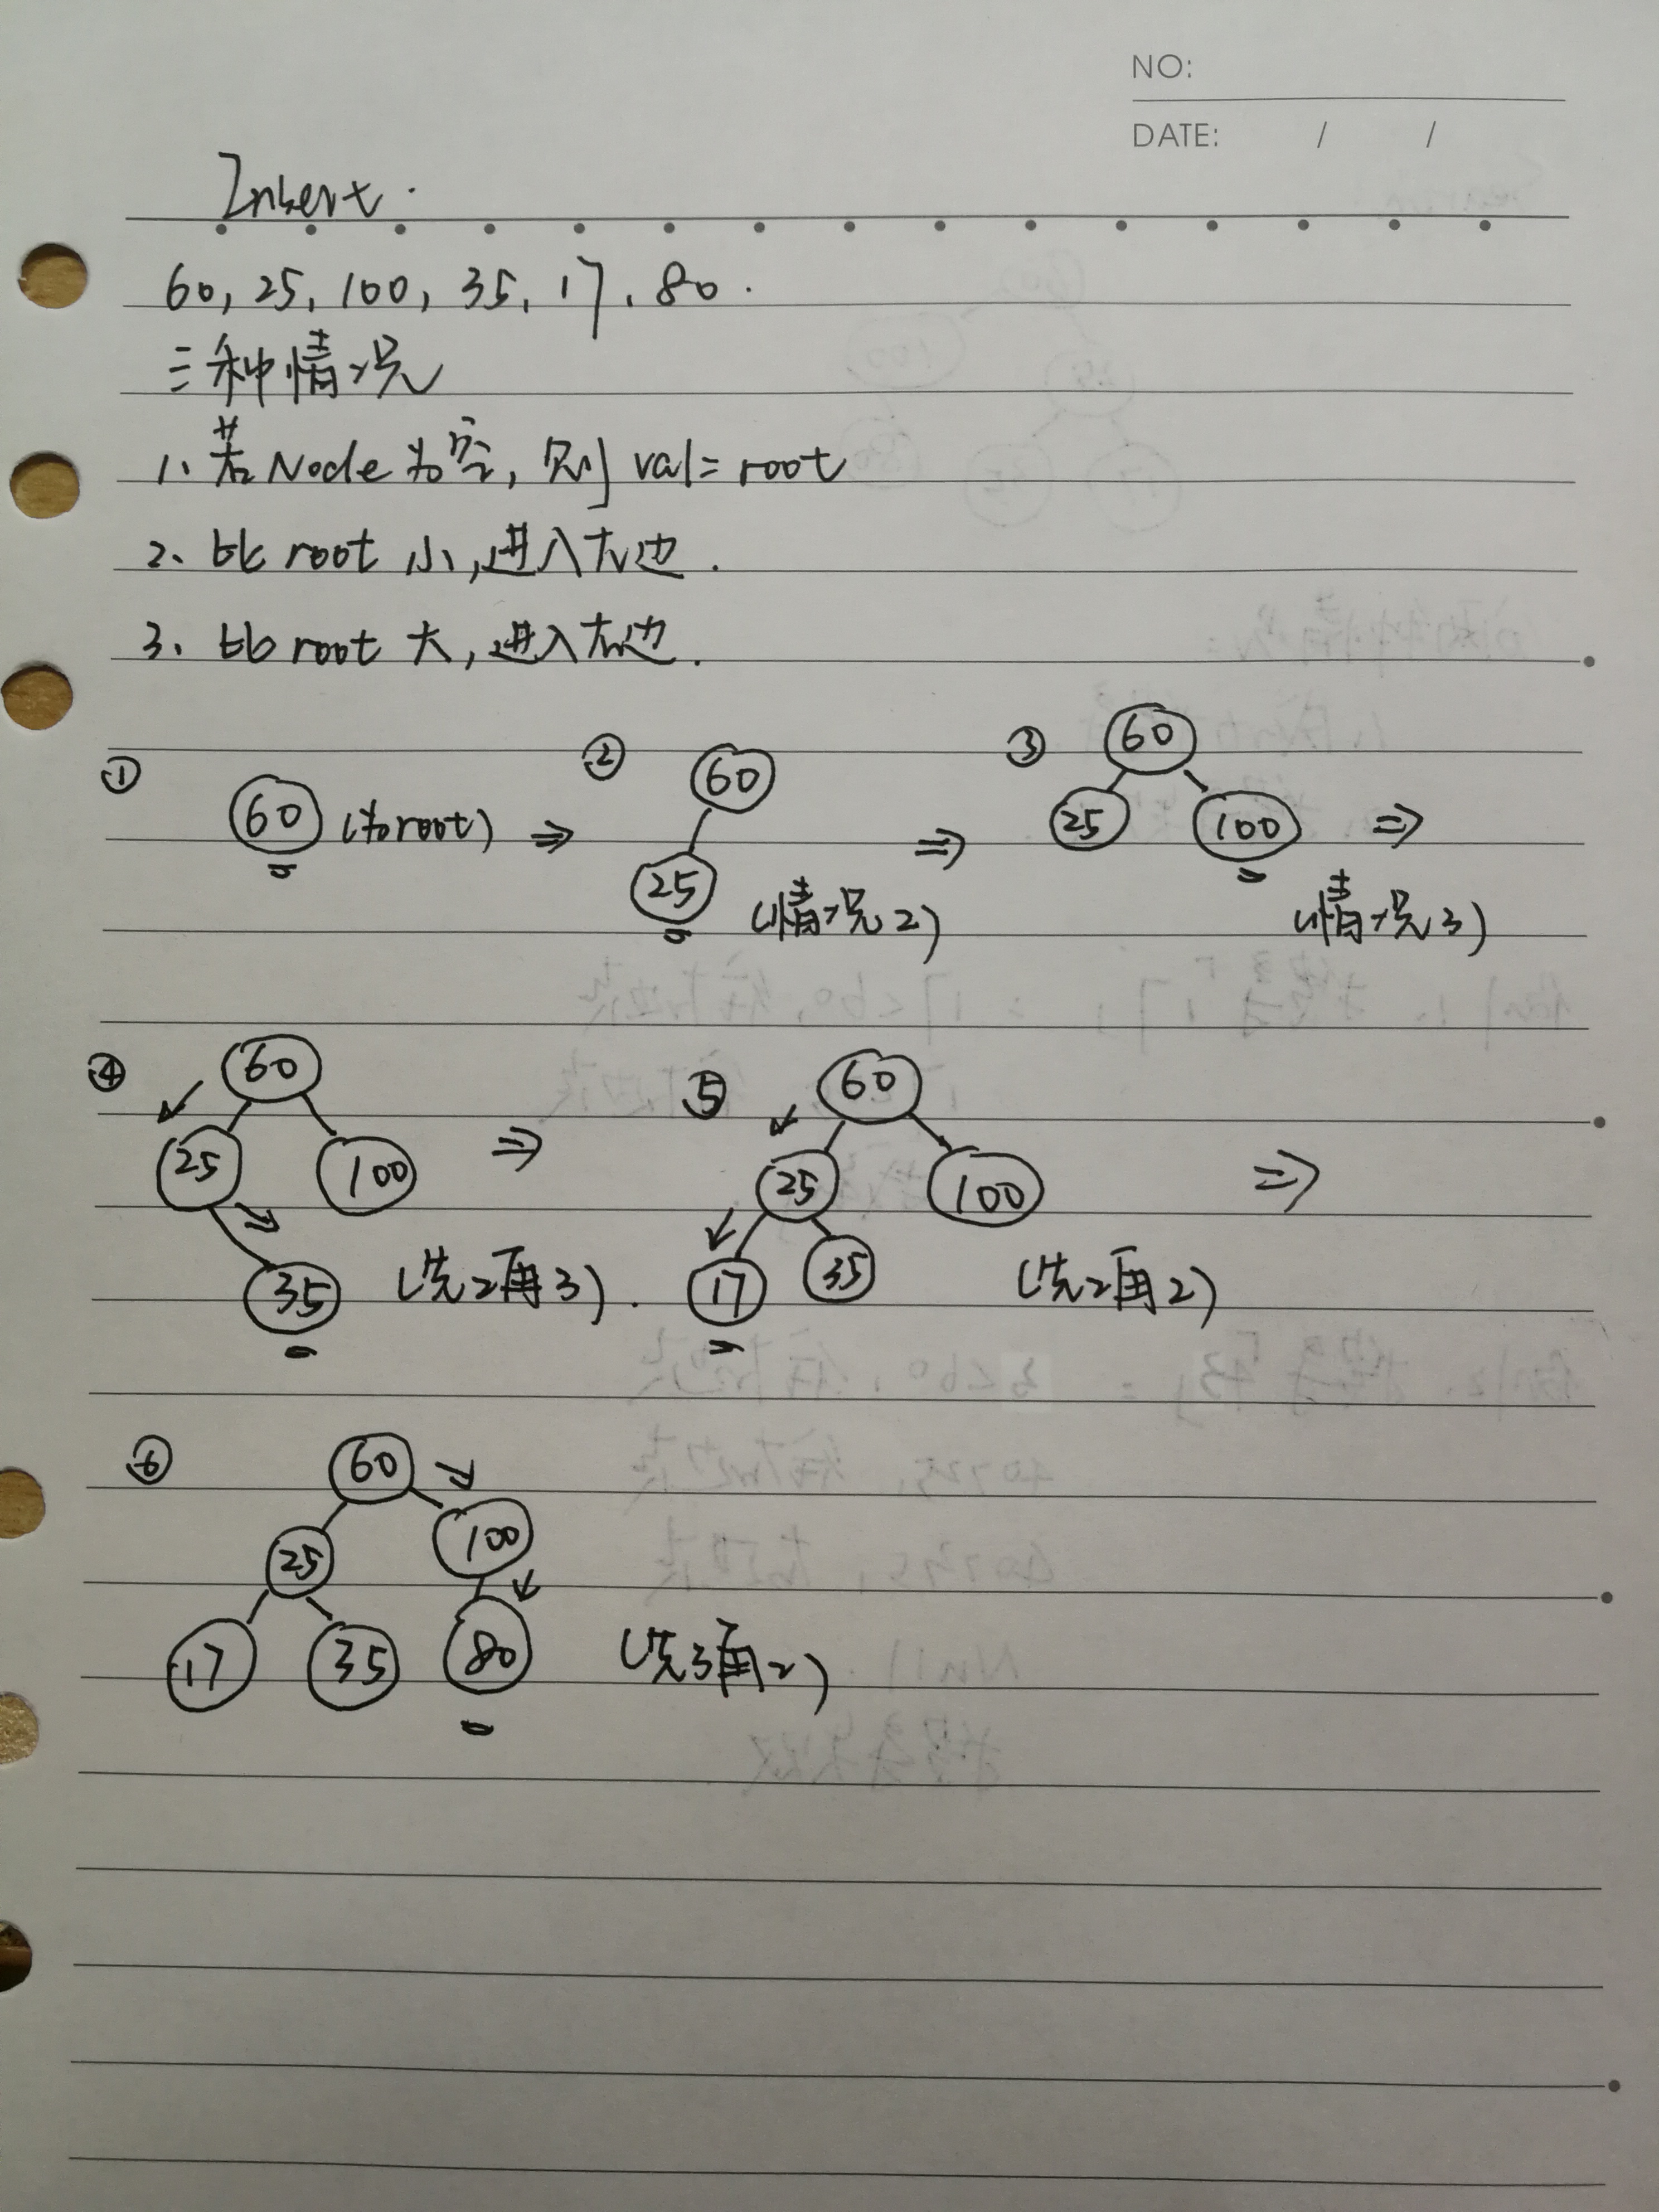 NO:
DATE: / /
Insert.
60, 25, 100, 35, 17, 80.
三种情况
1、若Node为空，则val=root
2、比root小，进入左边.
3、比root大，进入右边.
① ② ③
60 (为root) ⇒ 60 25 (情况2) ⇒ 60 25 100 ⇒ (情况3)
④ ⑤
60 25 100 35 (先2再3). ⇒ 60 25 100 17 35 (先2再2) ⇒
⑥
60
25 100
17 35 80 (先3再2)